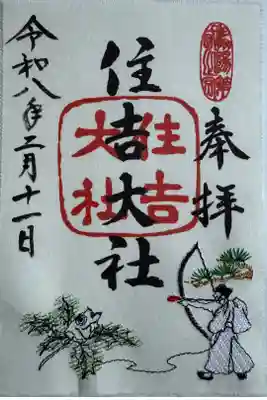 奉拝
住吉大社
住吉
大社
令和八年二月十一日